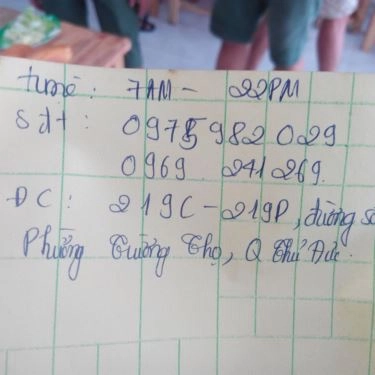 time: 7AM - 22PM
Sđt: 0975 982 029
0969 241 269.
ĐC: 219C - 219P, đường số
Phường Trường Thọ, Q Thủ Đức.